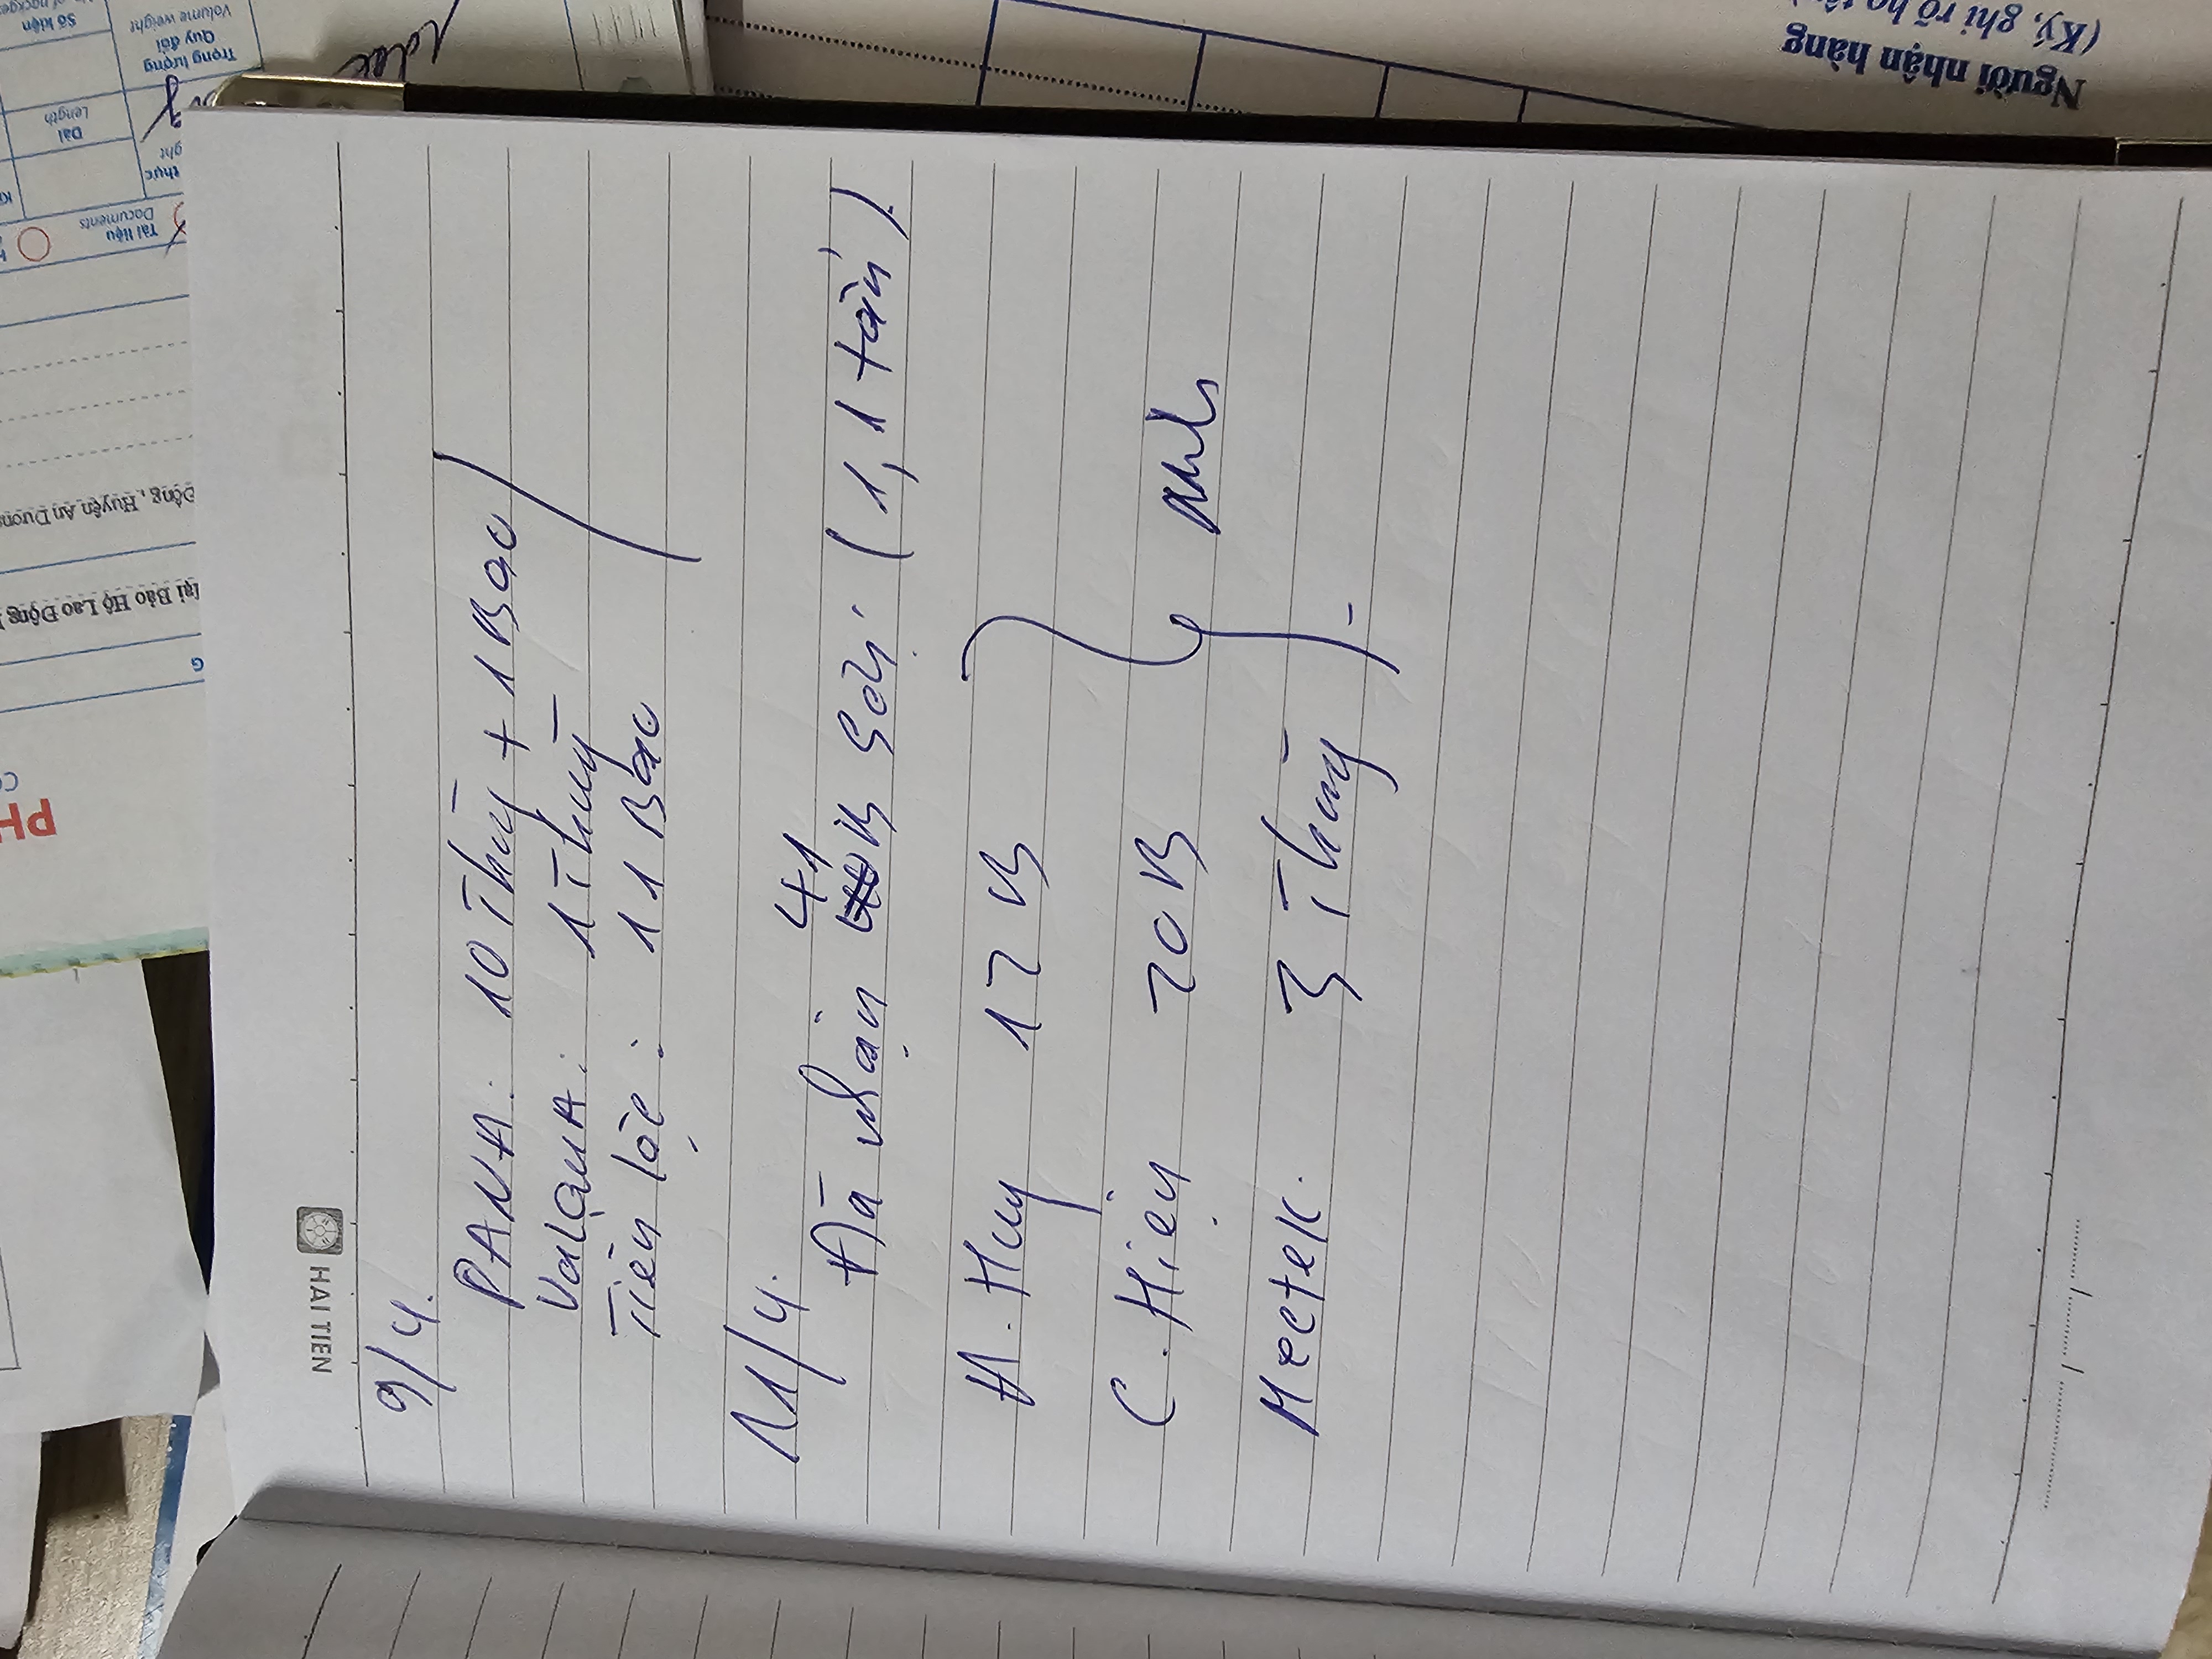 HAI TIEN
9/4.
PANA: 10 Thùng + 1 Bao
ValQuA: 1 Thùng
Tiến Lộc: 11 Bao
11/4.
41
Đã nhận B gối: (1,1 tấn).
A. Huy 17 B
C. Hiện 20B
Meetek. 3 Thùng
Người nhận hàng
(Ký, ghi rõ họ tên)
Số kiện
Trọng lượng
Quy đổi
Volume weight
Dài
Length
thực
Tài liệu
Documents
Động, Huyện An Dương
Tại Bảo Hộ Lao Động
G
PH